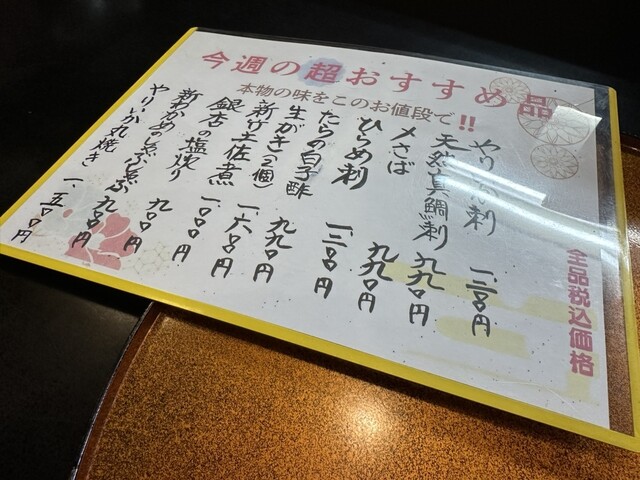 今週の超おすすめ品
本物の味をこのお値段で!!
やりいか刺 一、二〇〇円
天然真鯛刺 九九〇円
〆さば 九九〇円
ひらめ刺
たらの白子酢 九九〇円
生がき(2個) 一、六〇〇円
新竹土佐煮
銀杏の塩炒り 九〇〇円
新わかめの
やりいか丸焼き 一、五〇〇円
全品税込価格